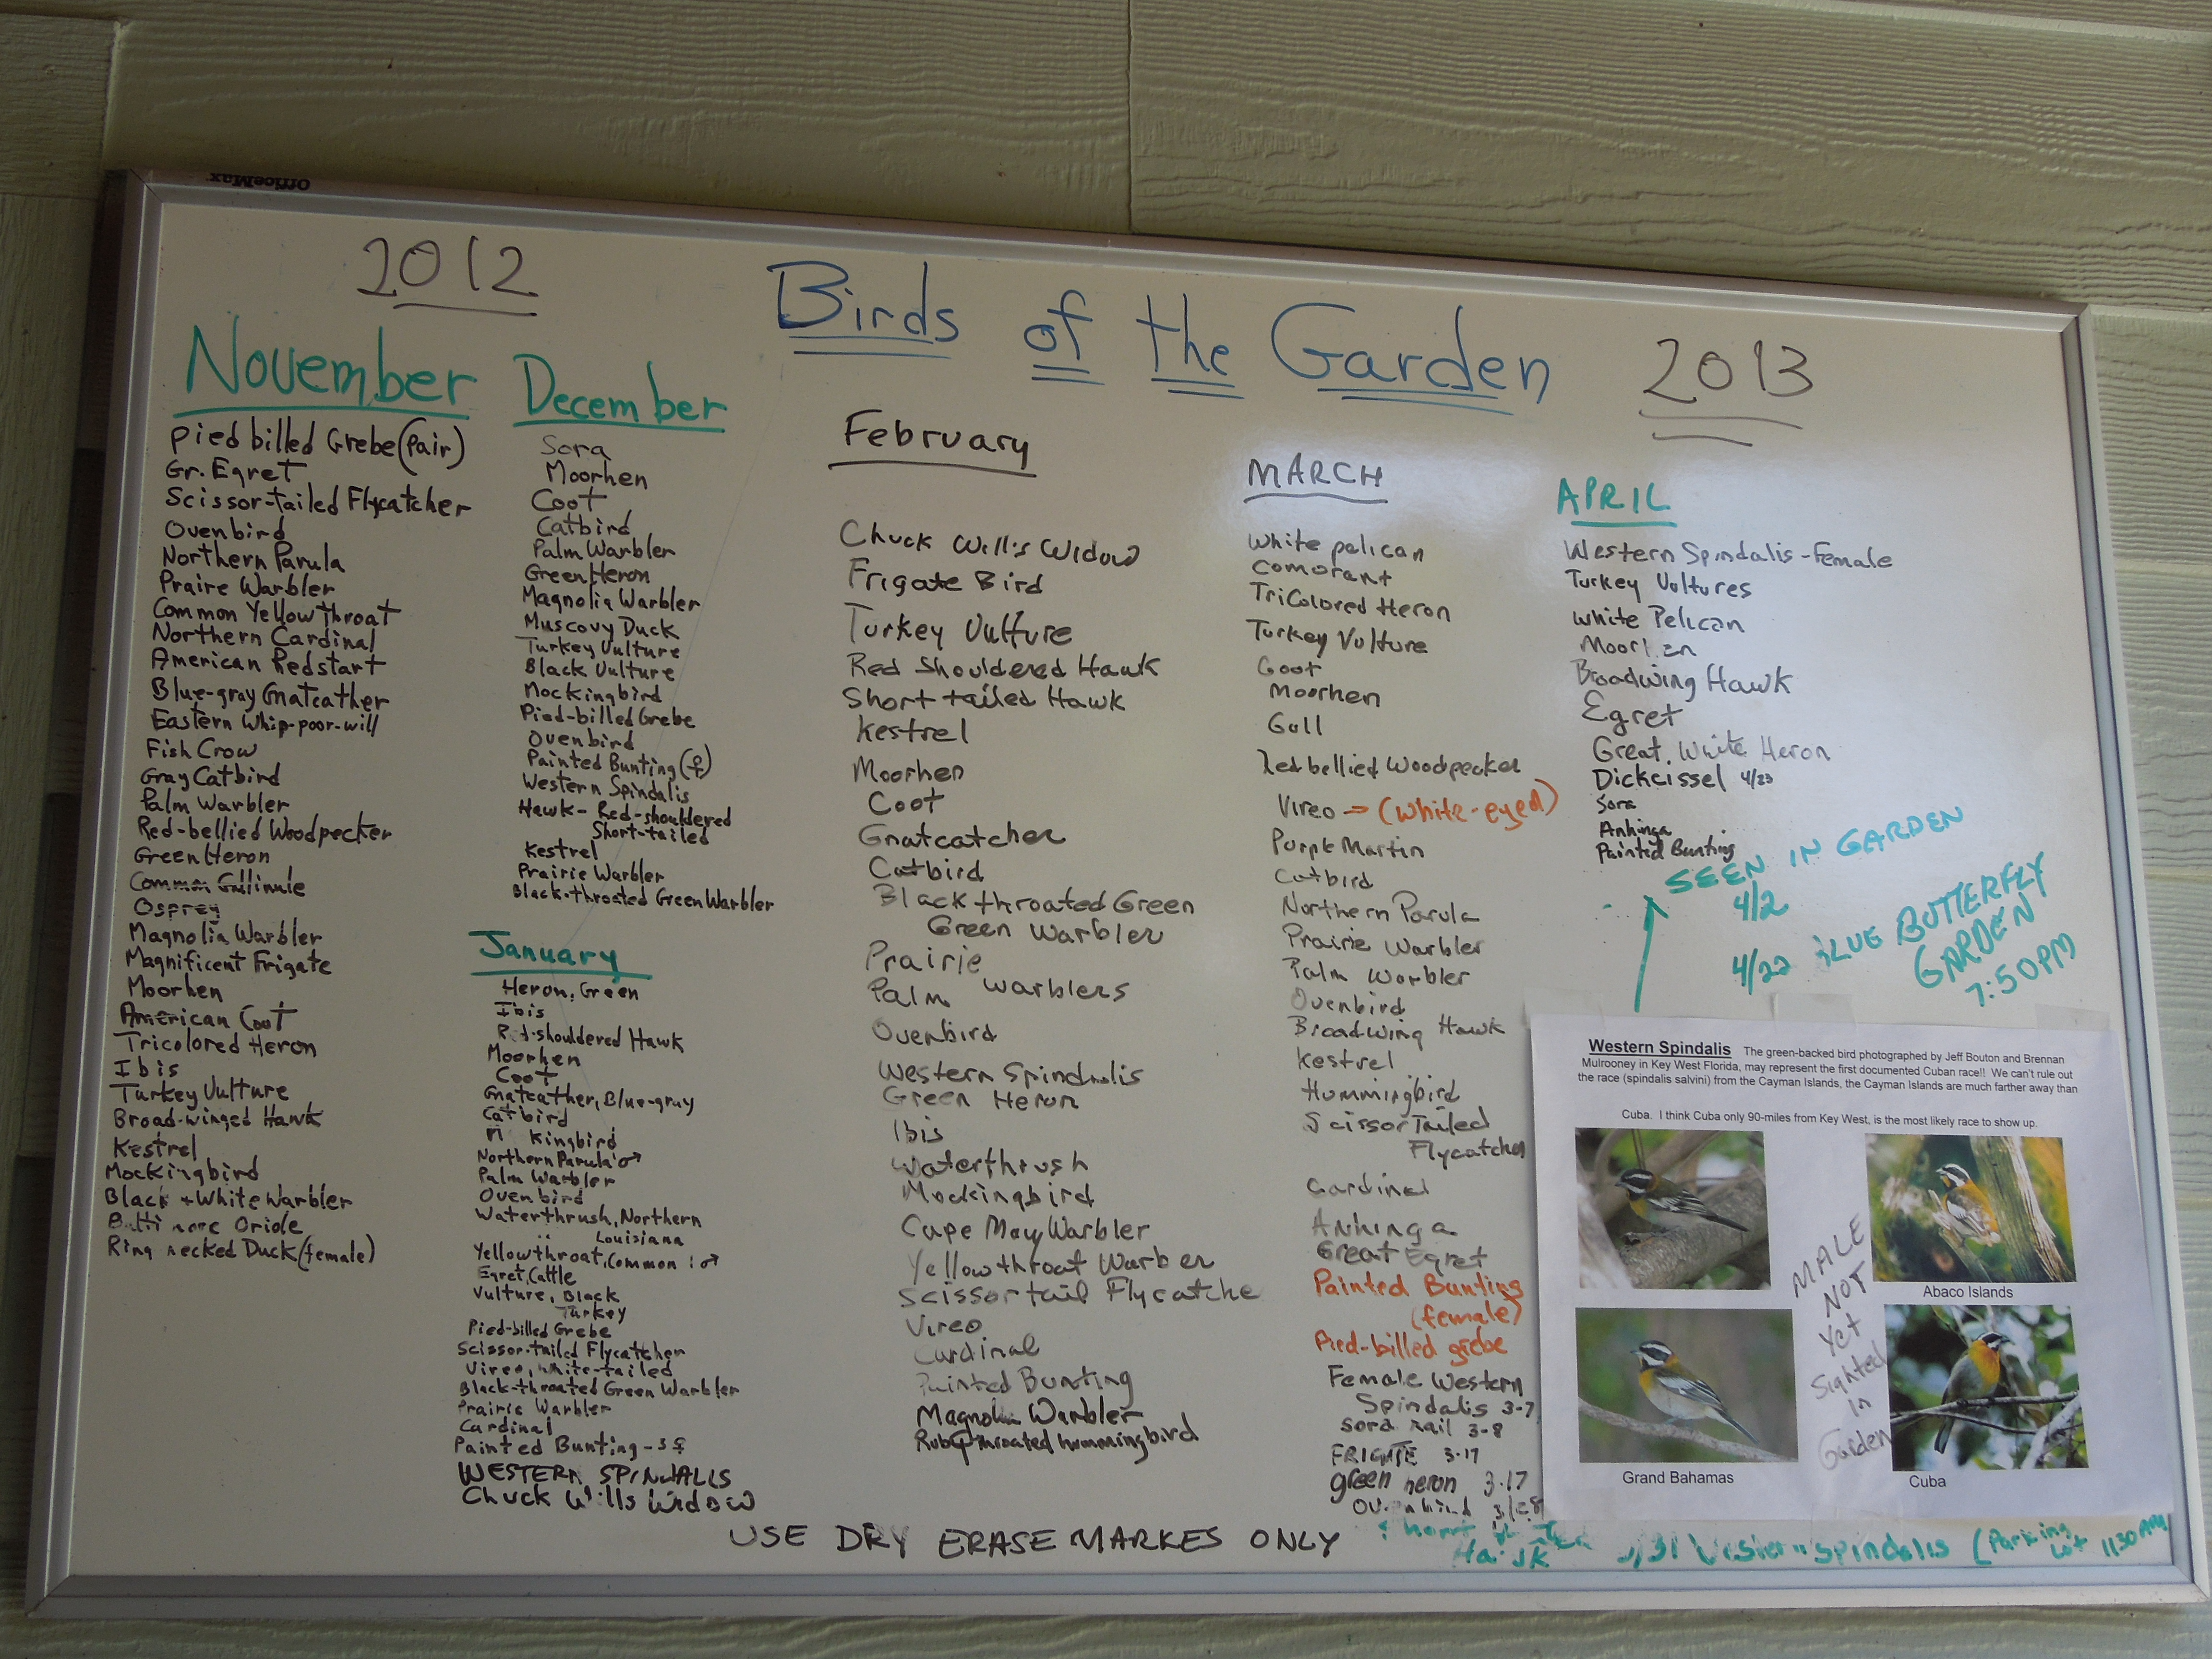 OfficeMax
2012
Birds of the Garden
2013
November
Pied billed Grebe (Pair)
Gr. Egret
Scissor-tailed Flycatcher
Ovenbird
Northern Parula
Praire Warbler
Common Yellowthroat
Northern Cardinal
American Redstart
Blue-gray Gnatcather
Eastern Whip-poor-will
Fish Crow
Gray Catbird
Palm Warbler
Red-bellied Woodpecker
Green Heron
Common Gallinule
Osprey
Magnolia Warbler
Magnificent Frigate
Moorhen
American Coot
Tricolored Heron
Ibis
Turkey Vulture
Broad-winged Hawk
Kestrel
Mockingbird
Black + White Warbler
Oriole
Ring necked Duck (female)
December
Sora
Moorhen
Coot
Catbird
Palm Warbler
Green Heron
Magnolia Warbler
Muscovy Duck
Turkey Vulture
Black Vulture
Mockingbird
Pied-billed Grebe
Ovenbird
Painted Bunting (♀)
Western Spindalis
Hawk - Red-shouldered
Short-tailed
Kestrel
Prairie Warbler
Black-throated Green Warbler
January
Heron, Green
Ibis
Red-shouldered Hawk
Moorhen
Coot
Gnatcather, Blue-gray
Catbird
kingbird
Northern Parula ♂
Palm Warbler
Ovenbird
Waterthrush, Northern
" Louisiana
Yellowthroat, Common : ♂
Egret, Cattle
Vulture, Black
Turkey
Pied-billed Grebe
Scissor-tailed Flycatcher
Vireo, white-tailed
Black-throated Green Warbler
Prairie Warbler
Cardinal
Painted Bunting - 3 ♀
WESTERN SPINDALLS
Chuck Wills Widow
February
Chuck Will's Widow
Frigate Bird
Turkey Vulture
Red Shouldered Hawk
Short tailed Hawk
Kestrel
Moorhen
Coot
Gnatcatcher
Catbird
Black throated Green
Green Warbler
Prairie
Palm Warblers
Ovenbird
Western Spindalis
Green Heron
Ibis
Waterthrush
Mockingbird
Cape May Warbler
Yellowthroat Warber
Scissortail Flycatche
Vireo
Cardinal
Painted Bunting
Magnolia Warbler
Ruby throated hummingbird
MARCH
White pelican
Comorant
TriColored Heron
Turkey Vulture
Coot
Moorhen
Gull
Red bellied Woodpecker
Vireo → (White-eyed)
Purple Martin
Catbird
Northern Parula
Prairie Warbler
Palm Warbler
Ovenbird
Broadwing Hawk
Kestrel
Hummingbird
Scissor Tailed
Flycatcher
Cardinal
Anhinga
Great Egret
Painted Bunting
(female)
Pied-billed grebe
Female Western
Spindalis 3-7
Sora rail 3-8
FRIGATE 3-17
green heron 3.17
APRIL
Western Spindalis - Female
Turkey Vultures
White Pelican
Moorhen
Broadwing Hawk
Egret
Great White Heron
Dickcissel 4/23
Sora
Anhinga
Painted Bunting
SEEN IN GARDEN
4/2
4/22 BLUE BUTTERFLY
GARDEN
7:50PM
Western Spindalis The green-backed bird photographed by Jeff Bouton and Brennan
Mulrooney in Key West Florida, may represent the first documented Cuban race!! We can't rule out
the race (spindalis salvini) from the Cayman Islands, the Cayman Islands are much farther away than
Cuba. I think Cuba only 90-miles from Key West, is the most likely race to show up.
Abaco Islands
MALE
NOT
Yet
Sighted
In
Garden
Grand Bahamas
Cuba
USE DRY ERASE MARKES ONLY
3/31 Western Spindalis (Parking Lot 1130 AM)